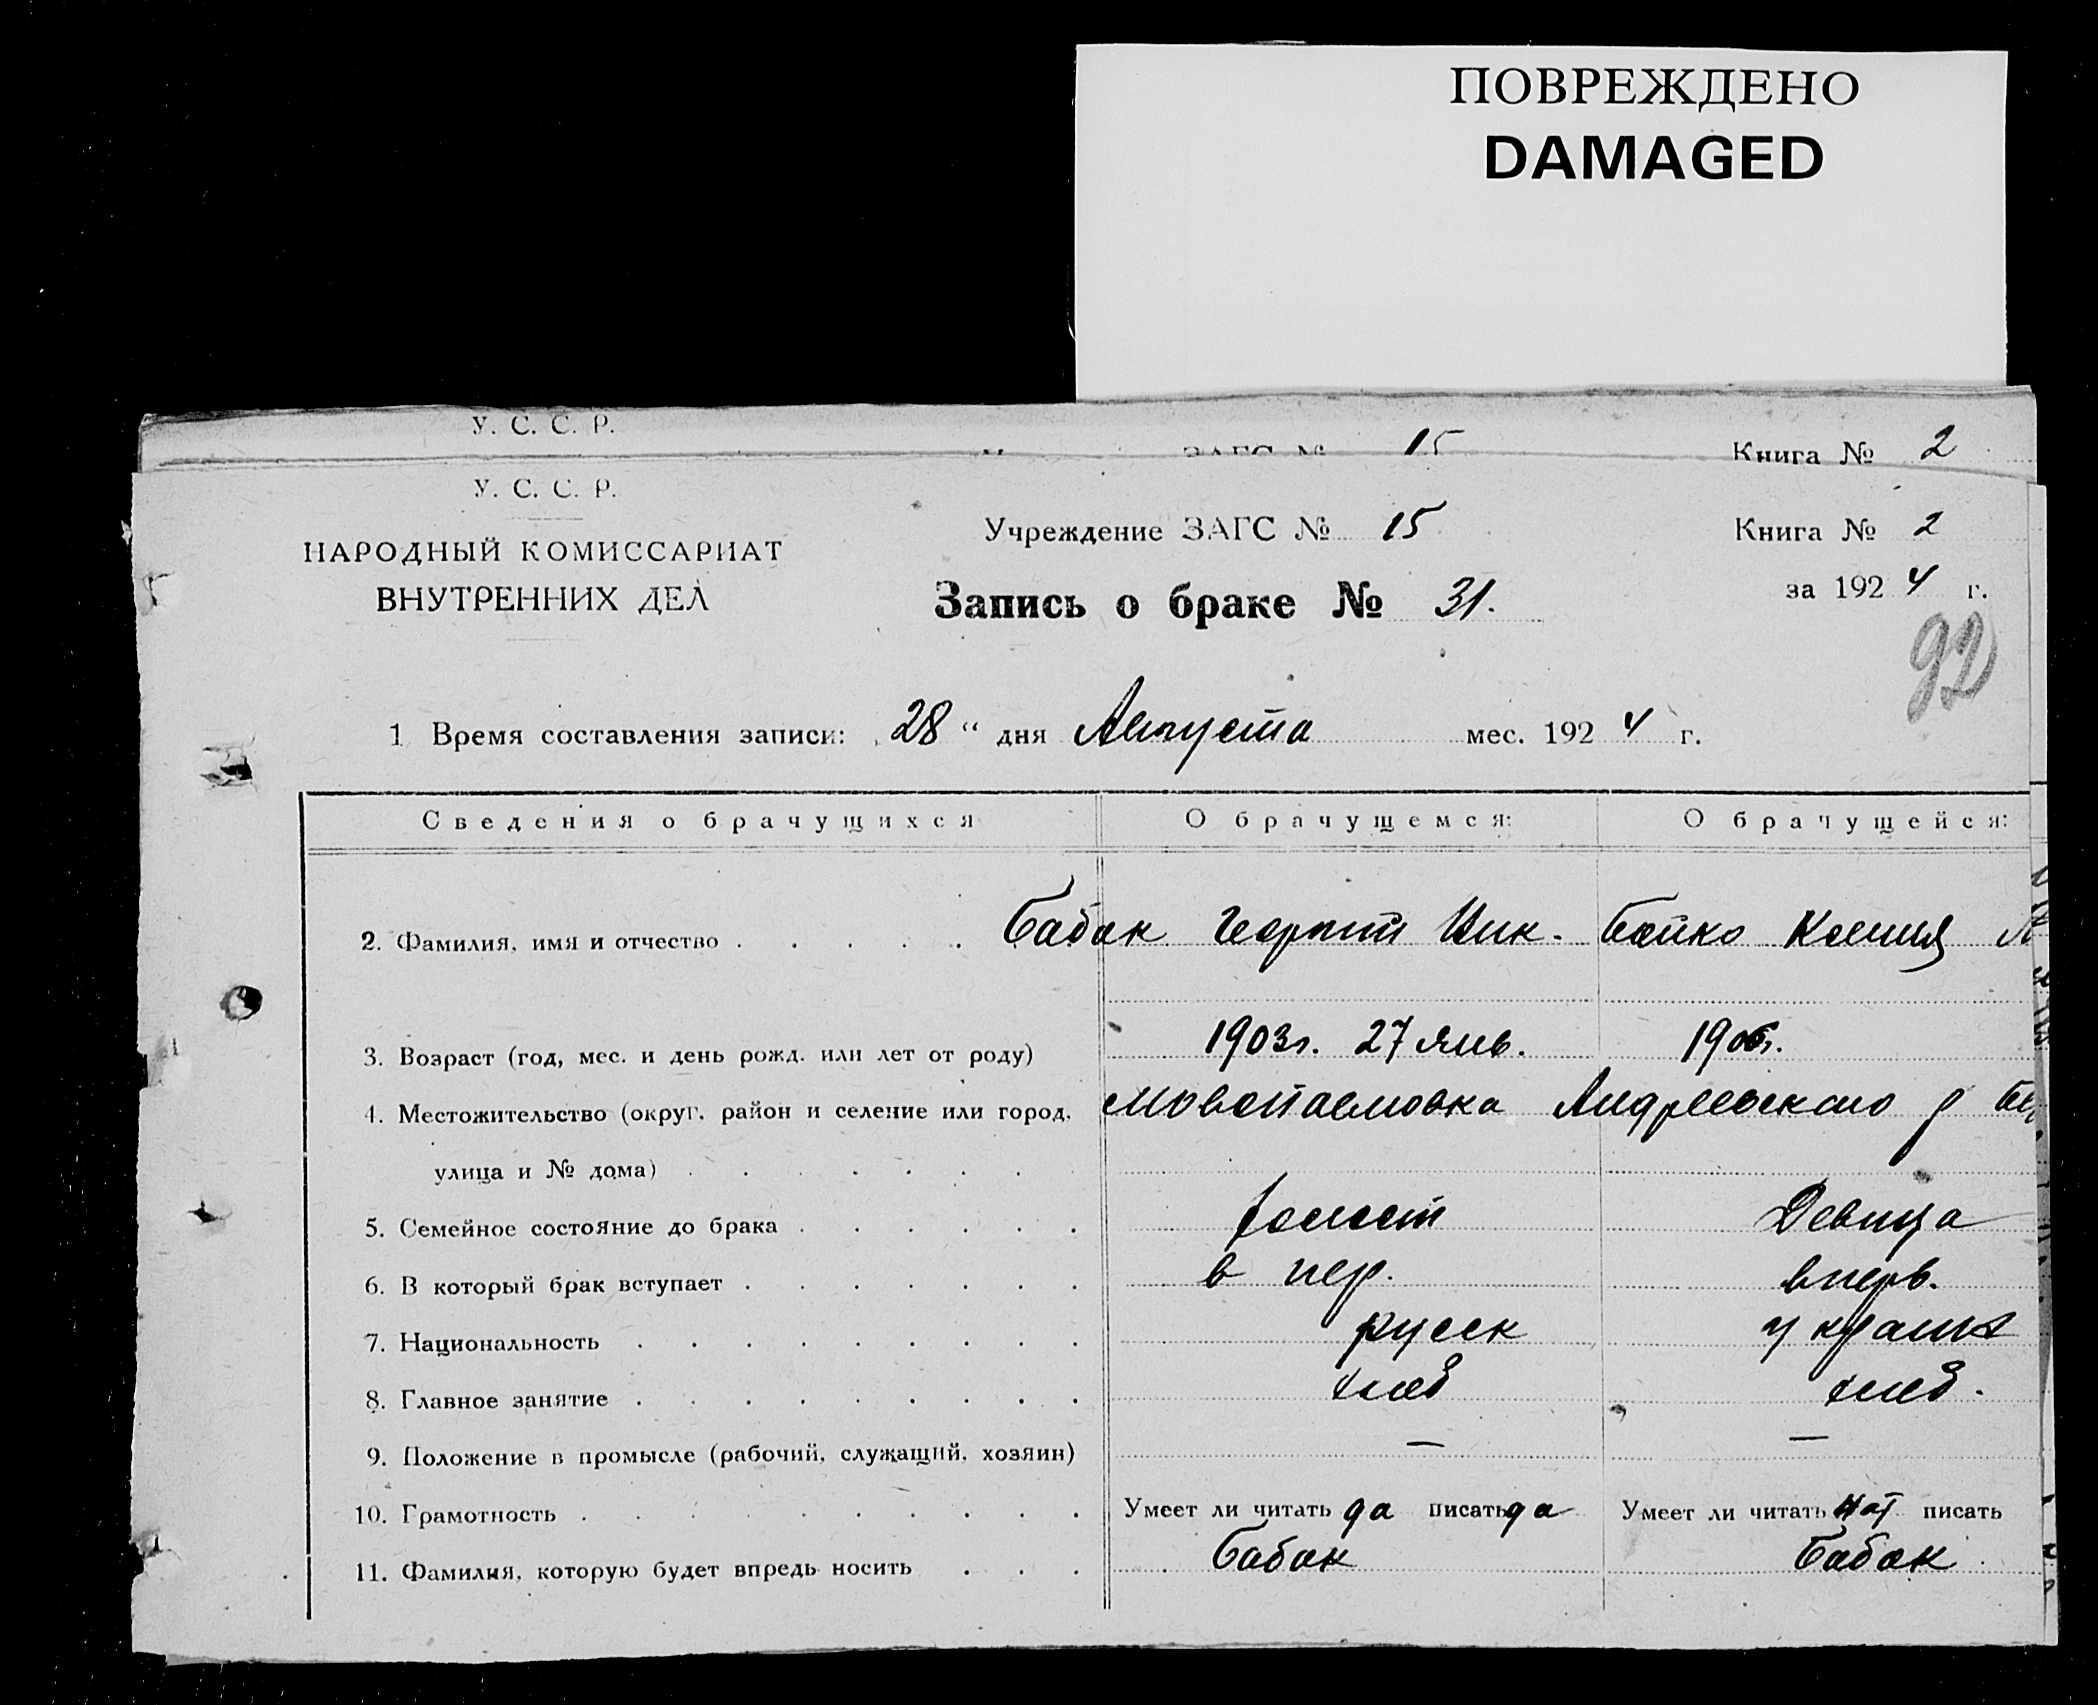 ПОВРЕЖДЕНО
DAMAGED
У. С. С. Р.
ЗАГС № 15 Книга № 2
У. С. С. Р.
НАРОДНЫЙ КОМИССАРИАТ
ВНУТРЕННИХ ДЕЛ
Учреждение ЗАГС № 15 Книга № 2
Запись о браке № 31. за 1924 г.
92
1 Время составления записи: „28“ дня Августа мес. 1924 г.
Сведения о брачущихся О брачущемся: О брачущейся:
2. Фамилия, имя и отчество . . . . . Бабак Георгий Ник. Бойко Ксения
3. Возраст (год, мес. и день рожд. или лет от роду) 1903г. 27 янв. 1906г.
4. Местожительство (округ, район и селение или город, Андреевского р
улица и № дома) . . . . . . .
5. Семейное состояние до брака . . . . . . холост Девица
6. В который брак вступает . . . . . . . в пер. вперв.
7. Национальность . . . . . . . . . русск украин
8. Главное занятие . . . . . . . . . хлеб хлеб.
9. Положение в промысле (рабочий, служащий, хозяин) — —
10. Грамотность . . . . . . . . . . Умеет ли читать да писать да Умеет ли читать нет писать
11. Фамилия, которую будет впредь носить . . . Бабак Бабак